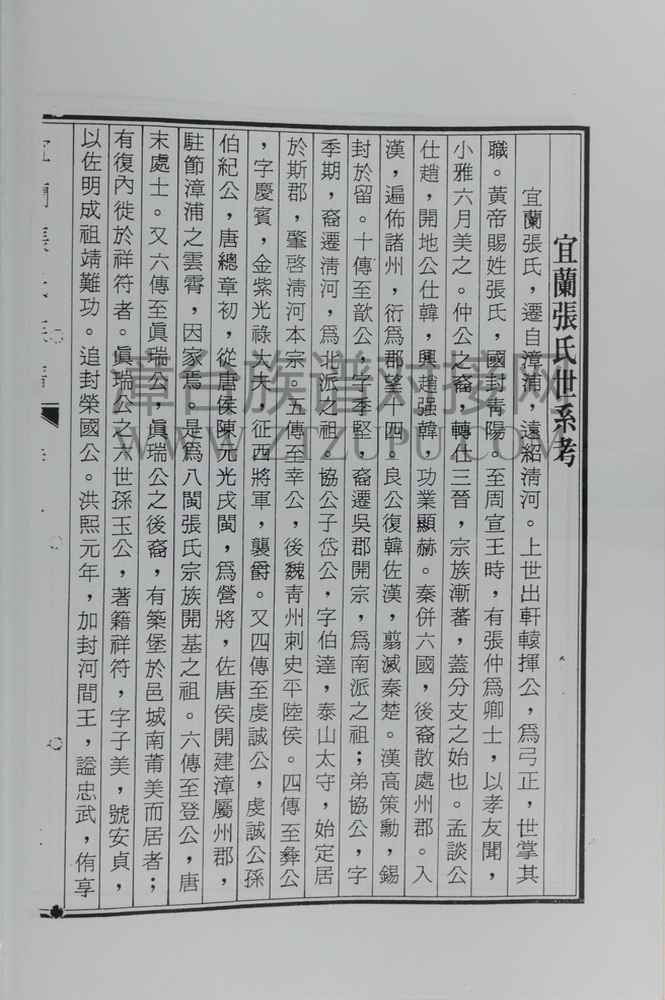 宜蘭張氏世系考
宜蘭張氏，遷自漳浦，遠紹淸河。上世出軒轅揮公，爲弓正，世掌其
職。黃帝賜姓張氏，國封靑陽。至周宣王時，有張仲爲卿士，以孝友聞，
小雅六月美之。仲公之裔，轉仕三晉，宗族漸蕃，蓋分支之始也。孟談公
仕趙，開地公仕韓，興趙强韓，功業顯赫。秦併六國，後裔散處州郡。入
漢，遍佈諸州，衍爲郡望十四。良公復韓佐漢，翦滅秦楚。漢高策勳，錫
封於留。十傳至歆公，字季堅，裔遷吳郡開宗，爲南派之祖；弟協公，字
季期，裔遷淸河，爲北派之祖。協公子岱公，字伯達，泰山太守，始定居
於斯郡，肇啓淸河本宗。五傳至幸公，後魏靑州刺史平陸侯。四傳至彝公
，字慶賓，金紫光祿大夫，征西將軍，襲爵。又四傳至虔誠公，虔誠公孫
伯紀公，唐總章初，從唐侯陳元光戌閩，爲營將，佐唐侯開建漳屬州郡，
駐節漳浦之雲霄，因家焉。是爲八閩張氏宗族開基之祖。六傳至登公，唐
末處士。又六傳至眞瑞公，眞瑞公之後裔，有築堡於邑城南莆美而居者；
有復內徙於祥符者。眞瑞公之六世孫玉公，著籍祥符，字子美，號安貞，
以佐明成祖靖難功。追封榮國公。洪熙元年，加封河間王，謚忠武，侑享
漳台族谱对接网
WWW.ZTZUPU.COM